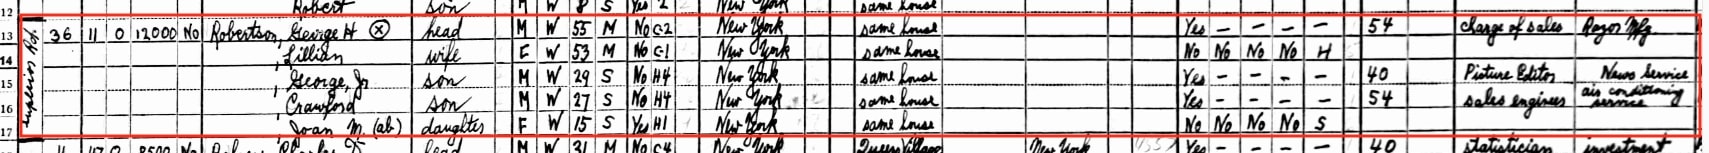 12 Robert son M W 8 S Yes 2 New York same house
13 36 11 0 12000 No Robertson, George H ⓧ head M W 55 M No C-2 New York same house Yes - - - 54 charge of sales Razor Mfg.
14 , Lillian wife F W 53 M No C-1 New York same house No No No No H
15 , George, Jr son M W 29 S No H4 New York same house Yes - - - 40 Picture Editor News Service
16 , Crawford son M W 27 S No H4 New York same house Yes - - - 54 sales engineer air conditioning service
17 , Joan M. (ab) daughter F W 15 S Yes H1 New York same house No No No No S
8500 No head M W 31 M No C4 New York Queens Village New York Yes - - - 40 statistician investment